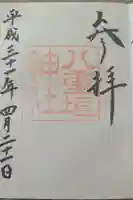 奉拝
八重垣
神社
平成三十一年四月二十一日